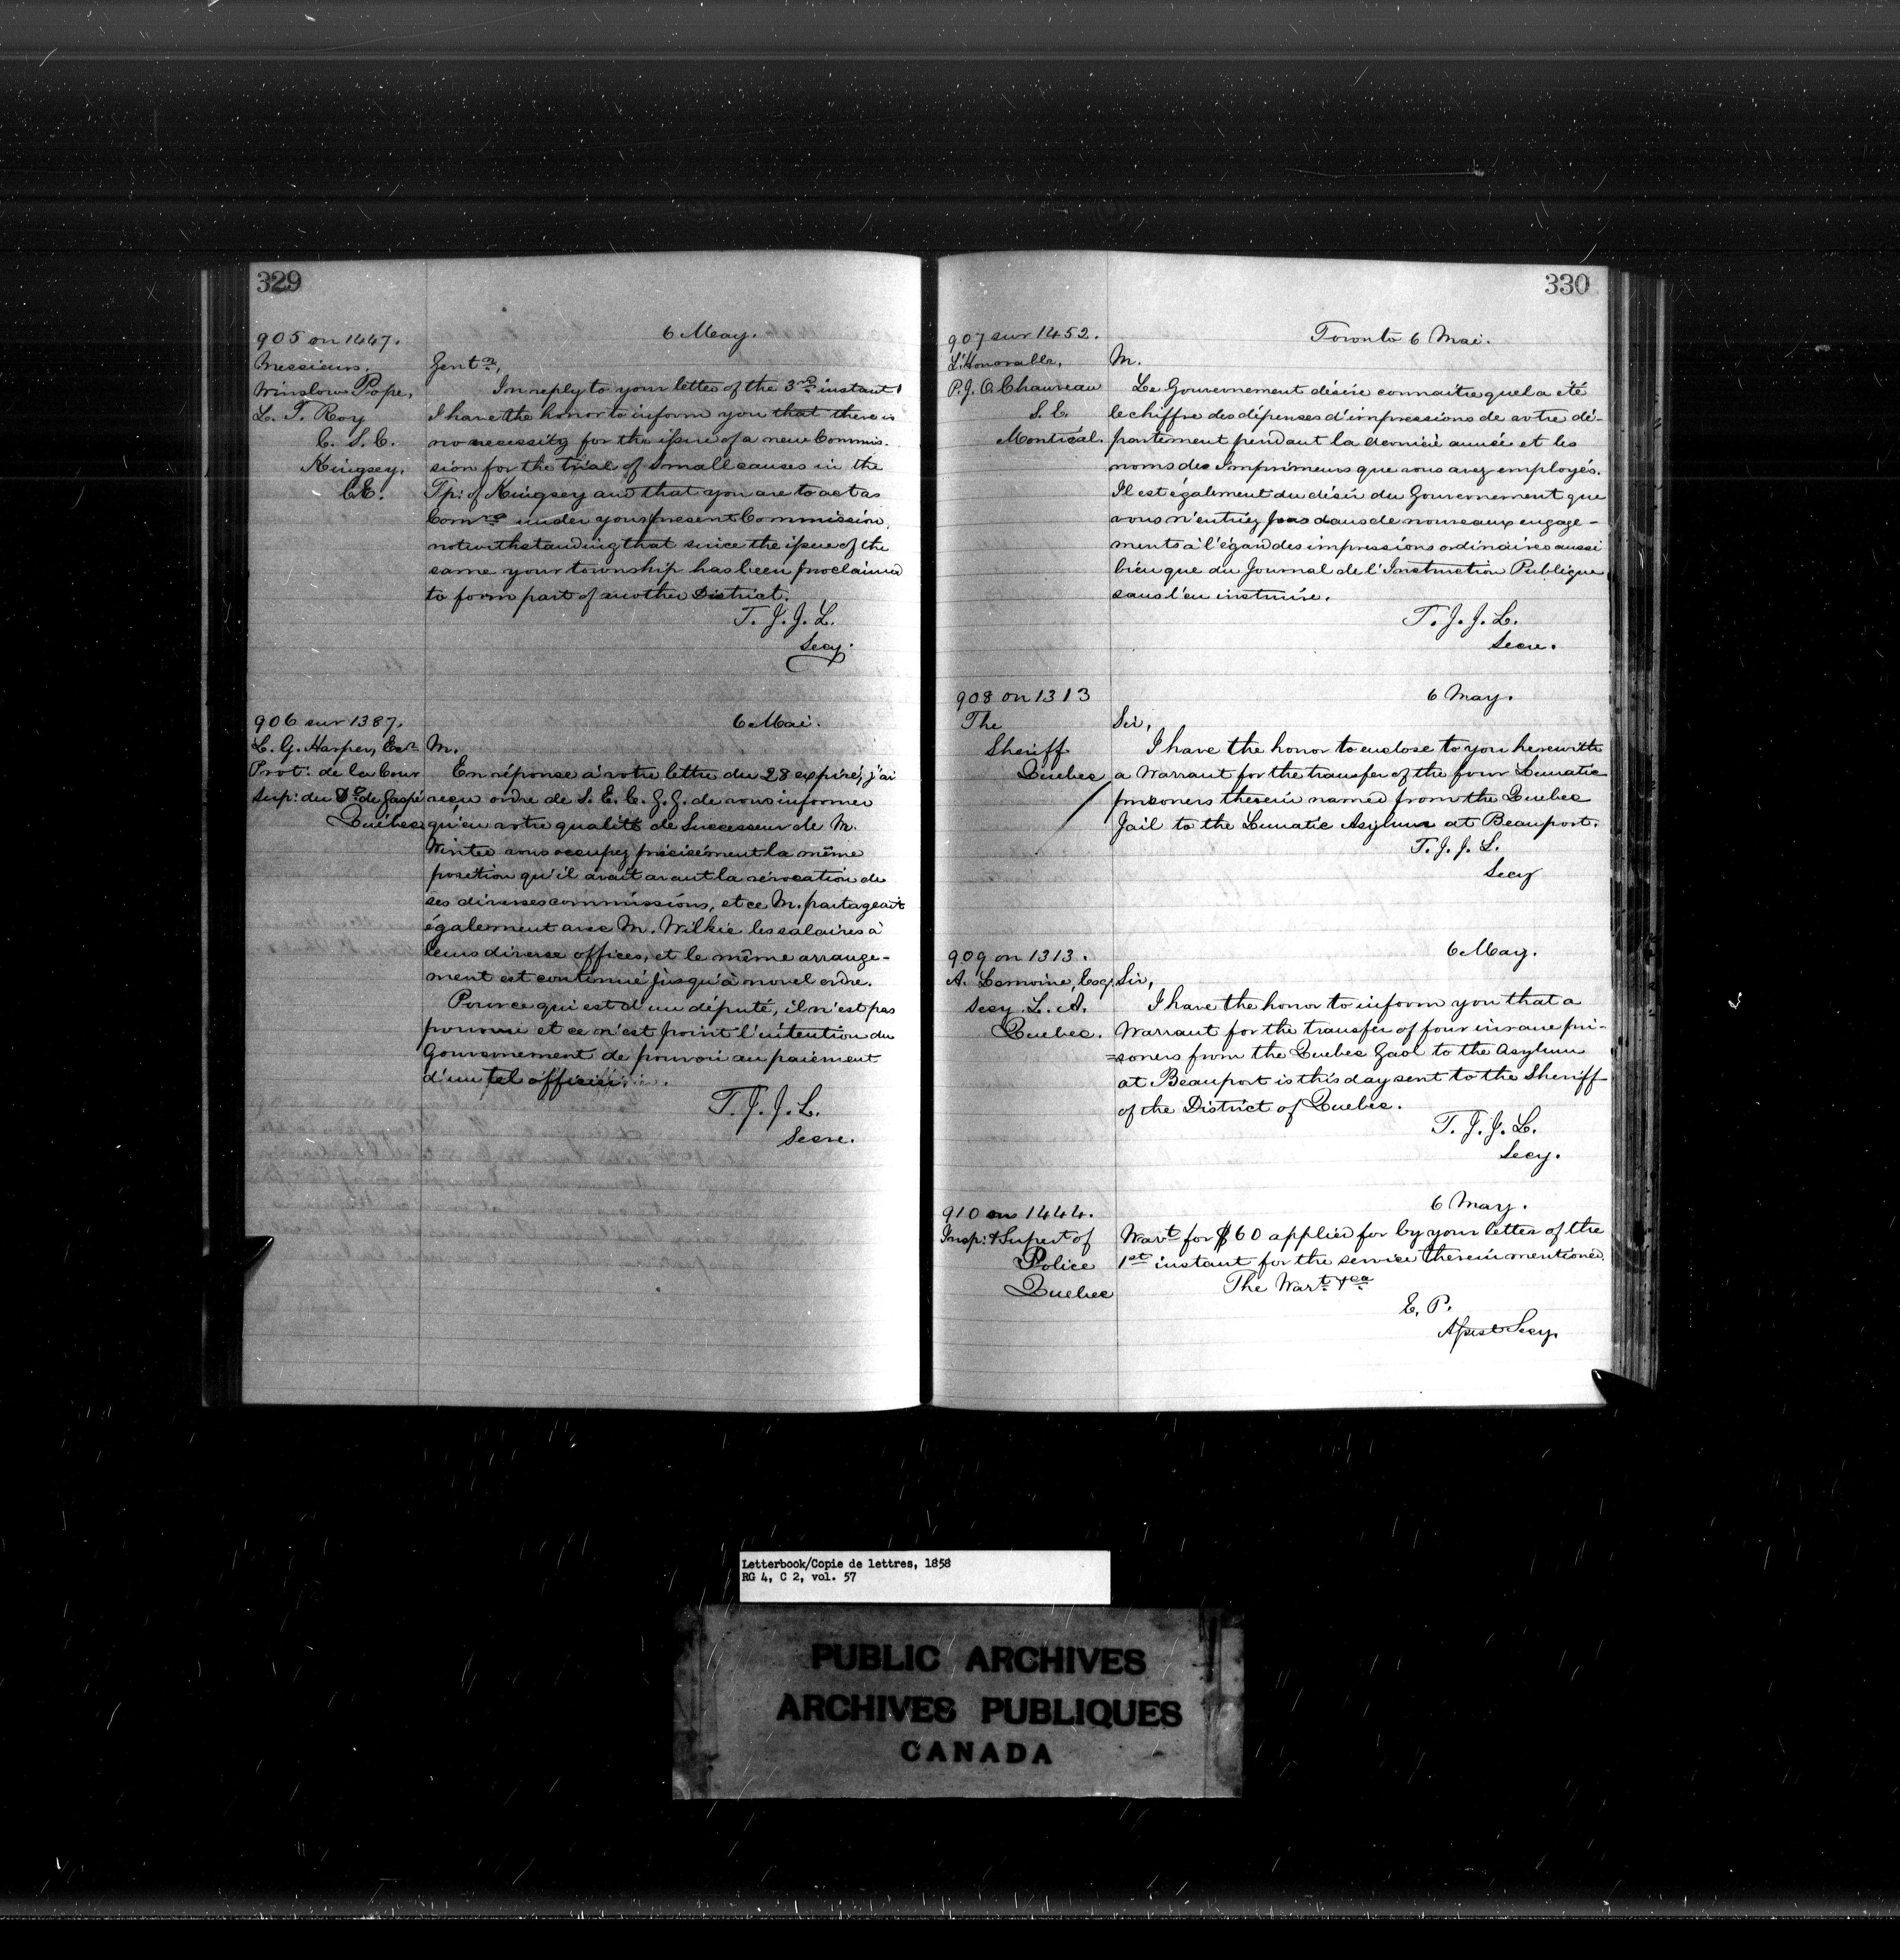 329
905 on 1447.
Messieurs,
Winslow Pope,
L. T. Roy
C. S. C.
Kingsey.
CE.
6 May.
Gentn.,
In reply to your letter of the 3rd instant
I have the honor to inform you that there is
no necessity for the issue of a new Commis-
sion for the trial of Small causes in the
Tp: of Kingsey and that you are to act as
Comrs under your present Commission,
notwithstanding that since the issue of the
same your township has been proclaimed
to form part of another District.
T. J. J. L.
Secy.
906 sur 1387.
L. G. Harper, Ecr
Prot: de la Cour
Sup: du Do de Gaspé
Québec
6 Mai.
M.
En réponse à votre lettre du 28 expiré, j'ai
reçu ordre de S. E. C. G. G. de vous informer
qu'en votre qualité de Successeur de M.
Winter vous occupez précisément la même
position qu'il avait avant la révocation de
ses diverses commissions, et ce M. partageait
également avec M. Wilkie les salaires à
leurs diverse offices, et le même arrange-
ment est continué jusqu'à novel ordre.
Pour ce qui est d'un député, il n'est pas
pourvu et ce n'est point l'intention du
Gouvernement de pourvoir au paiement
d'un tel officier.
T. J. J. L.
Secre.
330
907 sur 1452.
L'Honorable,
P. J. O. Chauveau
S. E.
Montréal.
Toronto 6 Mai.
M.
Le Gouvernement désire connaitre quel a été
le chiffre des dépenses d'impressions de votre dé-
partement pendant la dernière année et les
noms des Imprimeurs que vous avez employés.
Il est également du désir du Gouvernement que
vous n'entriez pas dans de nouveaux engage-
ments à l'égard des impressions ordinaires aussi
bien que du Journal de l'Instruction Publique
sans l'en instruire.
T. J. J. L.
Secre.
908 on 1313
The
Sheriff
Quebec
6 May.
Sir,
I have the honor to enclose to you herewith
a Warrant for the transfer of the four Lunatic
prisoners therein named from the Quebec
Jail to the Lunatic Asylum at Beauport.
T. J. J. L.
Secy
909 on 1313.
A. Lemoine, Esq.
Secy. L. A.
Quebec.
6 May.
Sir,
I have the honor to inform you that a
Warrant for the transfer of four insane pri-
=soners from the Quebec Gaol to the Asylum
at Beauport is this day sent to the Sheriff
of the District of Quebec.
T. J. J. L.
Secy.
910 on 1444.
Insp: & Supert of
Police
Quebec
6 May.
Wart for $60 applied for by your letter of the
1st instant for the service therein mentioned.
The Wart. &ca
E. P.
Assist Secy.
Letterbook/Copie de lettres, 1858
RG 4, C 2, vol. 57
PUBLIC ARCHIVES
ARCHIVES PUBLIQUES
CANADA